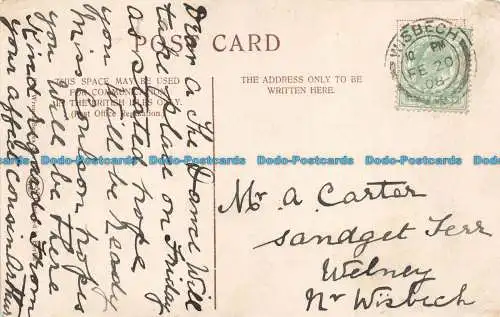 POST CARD
THIS SPACE MAY BE USED
FOR COMMUNICATION
IN THE BRITISH ISLES ONLY.
(Post Office Regulation.)
THE ADDRESS ONLY TO BE
WRITTEN HERE.
WISBECH
PM
FE 20
08
Dear A The Dame Will
take place on Friday
as stated hope
you will be ready
Miss hopes
you will be there
Kind regards from
your affec cousin Arthur
Mr A. Carter
Sandget Terr
Welney
Nr Wisbech
Dodo-Postcards Dodo-Postcards Dodo-Postcards Dodo-Postcards Dodo-Postcards